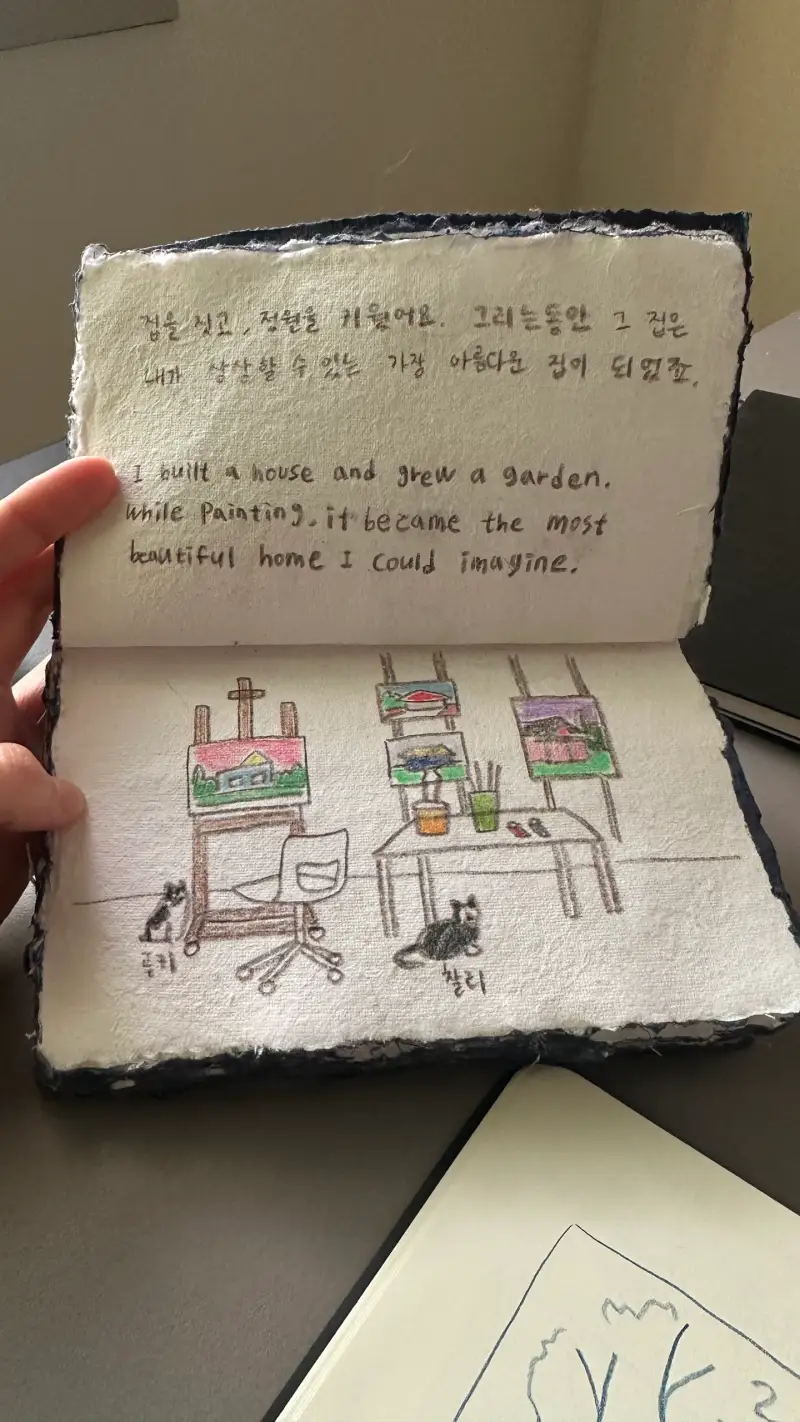 집을 짓고, 정원을 키웠어요. 그리는동안 그 집은
내가 상상할 수 있는 가장 아름다운 집이 되었죠.
I built a house and grew a garden.
While Painting, it became the most
beautiful home I could imagine.
루키
찰리